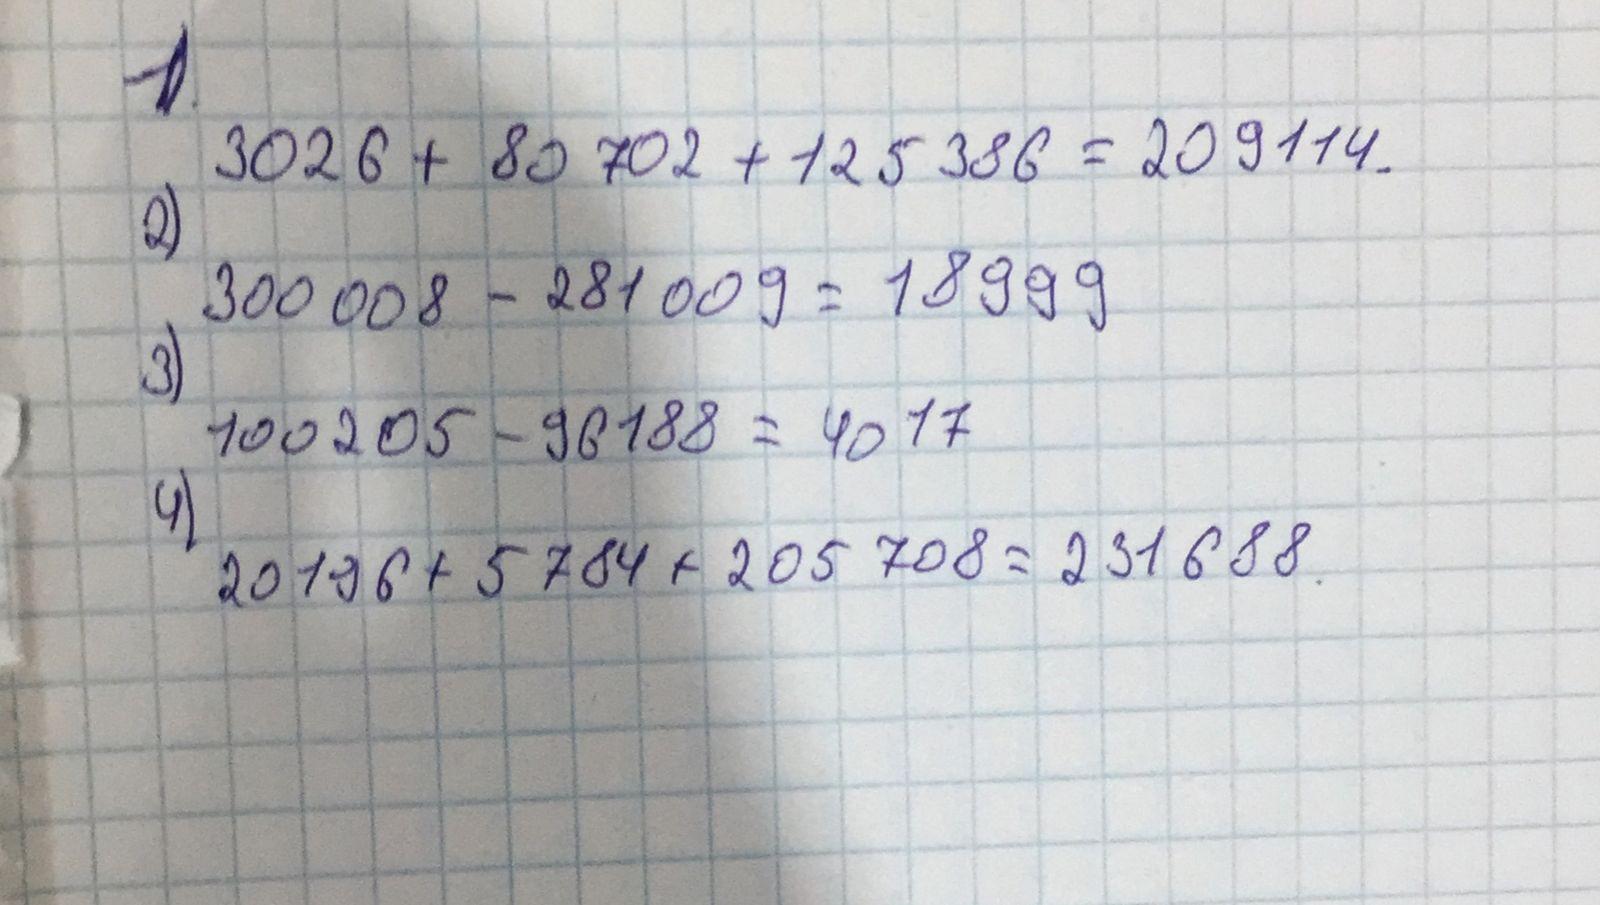 1.
3026 + 80 702 + 125 386 = 209114.
2)
300 008 - 281 009 = 18999
3)
100205 - 96188 = 4017
4)
20196 + 5 784 + 205 708 = 231688.